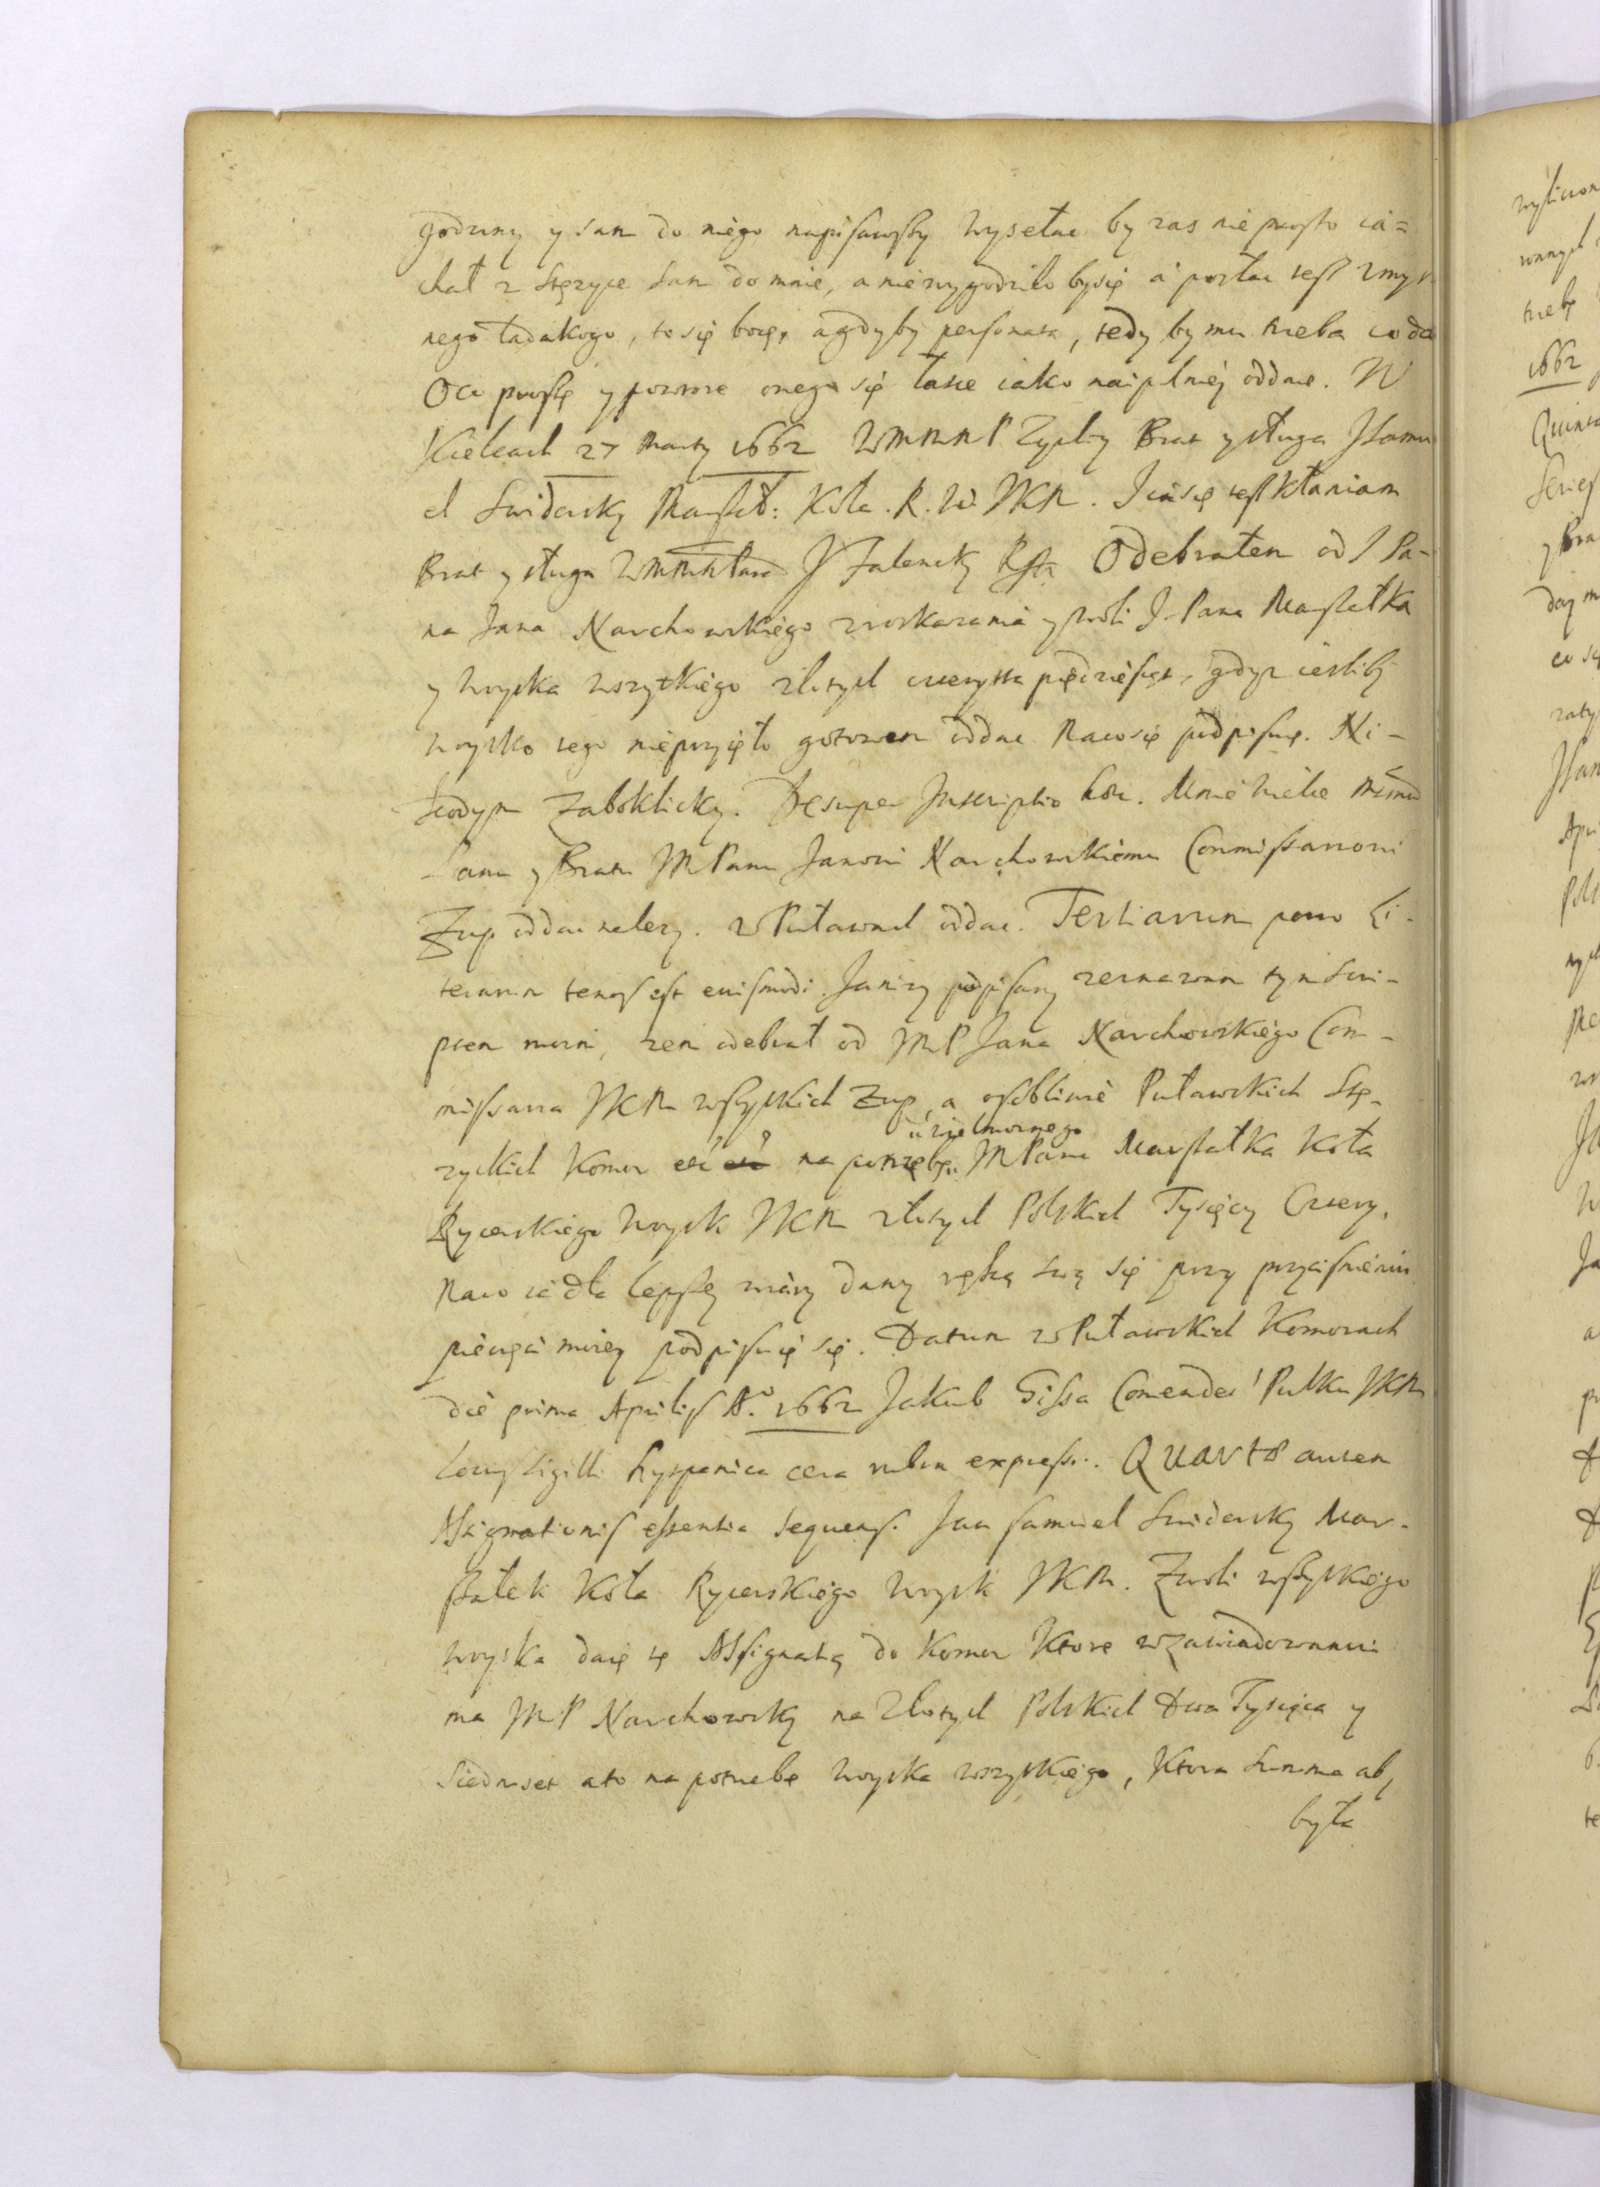 godziny y sam do niego napisawszy wysełac by zas nie prosto ia=
chał z Stęzyce sam do mnie, a niezwygodziło bysię a posłac iest
nego ładakogo, to się boię, agdyby personata, tedy by mu trzeba co da
Oco proszę y powtore onego się łasce iako naipilniej oddaię. W
Kielcach 27 Marty 1662 WMMMP Zyczliwy Brat y sługa JSamu
el Swiderky Marszał: Koła. R. W. JKM. J ia się tesz kłaniam
Brat y sługa J Zalensky Odebrałem od J Pa-
na Jana Narchowskiego zroskazania y woli J. Pana Marszałka
y woyska wszytkiego złotych czterysta piędziesiąt, gdyz iesliby
woysko tego nieprzyięło gotowem oddac Naco się podpisuię. Ni-
kodym Zaboklicky. Desuper Inscriptio hoc. Mnie wielce
Panu y Bratu MPanu Janowi Narchowskiemu Commissarzowi
Zup oddac nalezy. w Puławach oddac. Tertiarum porro Li-
terarum tenor est euismodi. Ja nizy podpisany zeznawam tym Scri-
ptem moim, zem odebrał od MP Jana Narchowskiego Com-
missarza JKM wszyskich Zup, a osobliwie Puławskich Stę-
uzielmoznego
zyckich Komor na potrzebę MPana Marszałka Koła
Rycerskiego Woysk JKM złotych Polskich Tysięcy Cztery,
Naco ia dla lepszey wiary dany ręką swą się przy przycisnieniu
pieczęci moiey podpisuię się. Datum w Puławskich Komorach
die prima Aprilis Aº. 1662 Jakub Gissa Comender Pulku JKM
Locus sigilli hyspanica cera rubra expressi. Quarto autem
Assignationis essentia sequens. Jan Samuel Swidersky Mar-
szałek Koła Rycerskiego Woysk JKM. Zwoli wszyskiego
woyska daię tę Assignatią do Komor Ktore wzawiadowaniu
ma MP Narchowsky na Złotych Polskich Dwa Tysiąca y
Siedmset ato na potrzebę woyska wszyskiego, Ktora Summa ab,
była